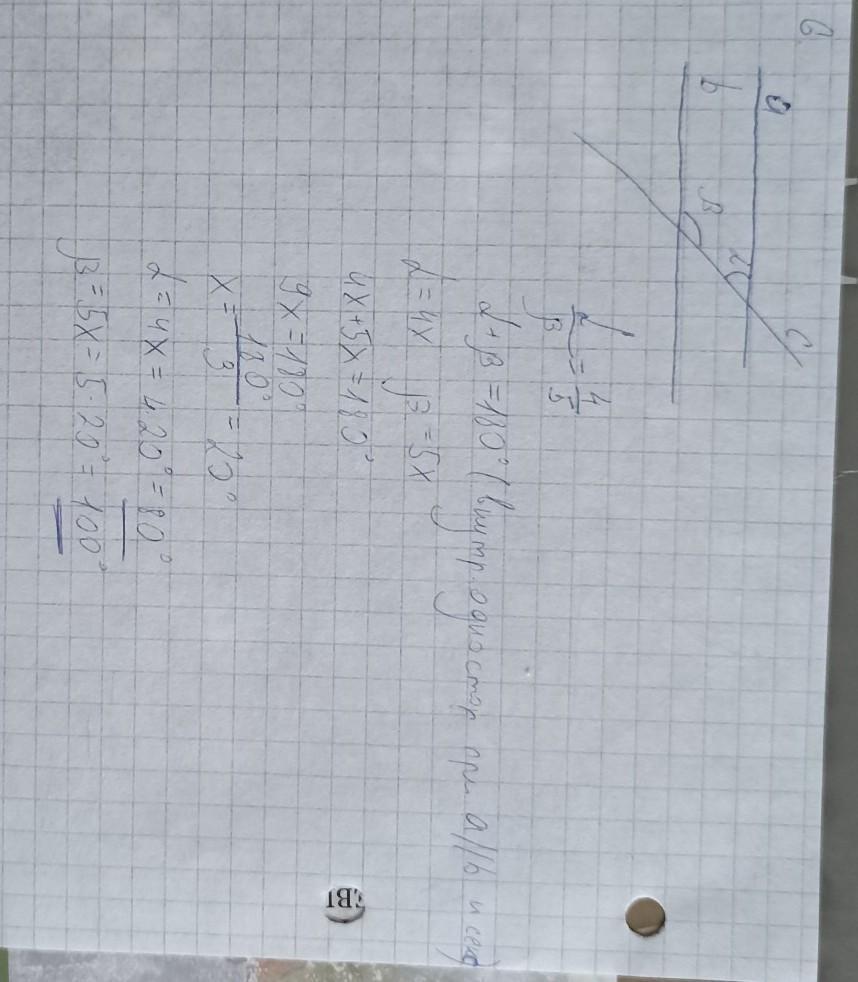 6
a
b
c
α
β
α/β = 4/5
α + β = 180° (внутр. одностор при a||b и сек)
α = 4x β = 5x
4x + 5x = 180°
9x = 180°
x = 180°/9 = 20°
α = 4x = 4·20° = 80°
β = 5x = 5·20° = 100°